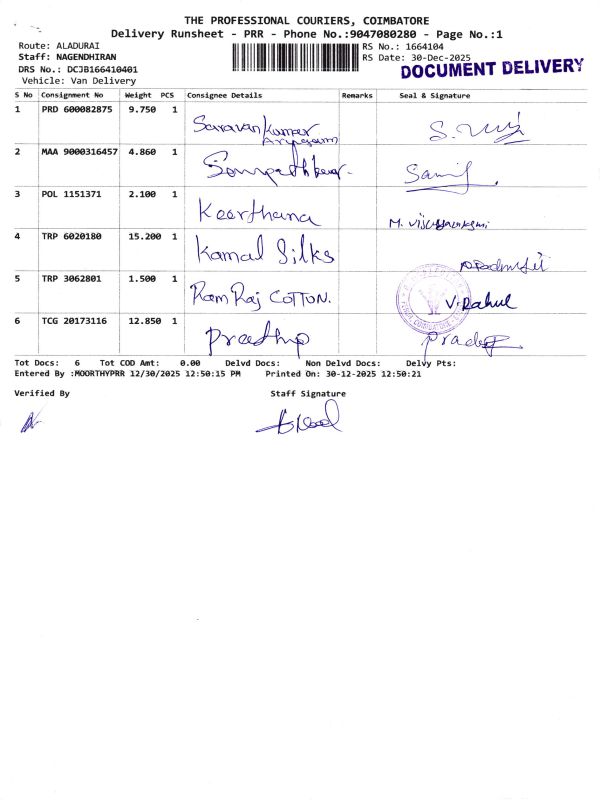 THE PROFESSIONAL COURIERS, COIMBATORE
Delivery Runsheet - PRR - Phone No.:9047080280 - Page No.:1
Route: ALADURAI
RS No.: 1664104
Staff: NAGENDHIRAN
RS Date: 30-Dec-2025
DRS No.: DCJB166410401
DOCUMENT DELIVERY
Vehicle: Van Delivery
S No Consignment No Weight PCS Consignee Details Remarks Seal & Signature
1 PRD 600082875 9.750 1 Saravan Kumar
2 MAA 9000316457 4.860 1
3 POL 1151371 2.100 1 Keerthana
4 TRP 6020180 15.200 1 Kamal Silks
5 TRP 3062801 1.500 1 Ram Raj COTTON. V. Rahul
6 TCG 20173116 12.850 1 Pradhip Pradeep
Tot Docs: 6 Tot COD Amt: 0.00 Delvd Docs: Non Delvd Docs: Delvy Pts:
Entered By :MOORTHYPRR 12/30/2025 12:50:15 PM Printed On: 30-12-2025 12:50:21
Verified By Staff Signature